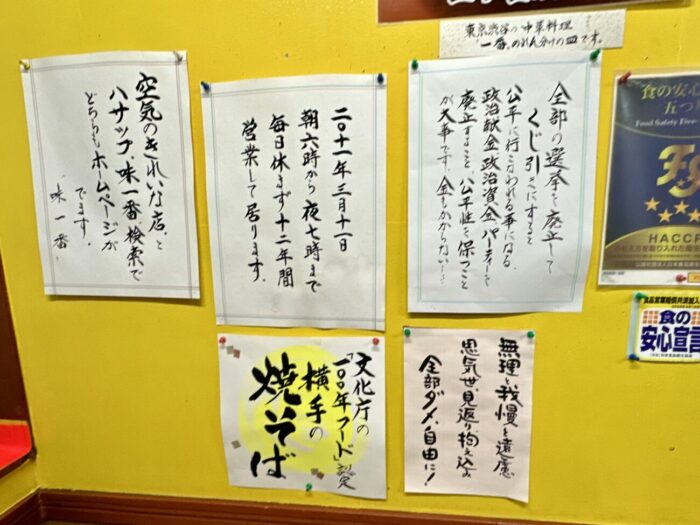 東京渋谷の中華料理
"一番"のれん分けの皿です。
空気のきれいな店と
ハサップ、味一番検索で
どちらもホームページが
でます。
味一番
二〇十一年三月十一日
朝六時から夜七時まで
毎日休まず十二年間
営業して居ります。
全部の選挙を廃止して
くじ引きにすると
公平に行こなわれる事になる。
政治献金、政治資金、パーティーを
廃止すること、公平性を保つこと
が大事です。金もかからない…。
食の安心
五つ
Food Safety Five-
HACCP
文化庁の
「一〇〇年フード」認定
横手の
焼そば
無理と我慢と遠慮
思気世、見返り、抱え込み
全部ダメ、自由に!
食の
安心宣言